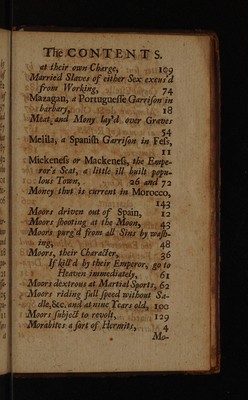 The CONTENTS.
at their own Charge, 109
Married Slaves of either Sex excus'd
from Working, 74
Mazagan, a Portuguesse Garrison in
barbary, 18
Meat and Many lay'd over Graves
54
Melila, a Spanish Garrison in Fess,
11
Mickeness or Mackeness, the Empe-
ror's Seat, a little ill built popu-
lous Town, 26 and 72
Money that is current in Morocco,
143
Moors driven out of Spain, 12
Moors shooting at the Moon, 43
Moors purg'd from all Sins by wash-
ing, 48
Moors, their Character, 36
If kill'd by their Emperor, go to
Heaven immediately, 61
Moors dextrous at Martial Sports, 62
Moors riding full speed without Sa-
ddle, &c. and at nine Years old, 100
Moors subject to revolt, 129
Morabites a sort of Hermits, 4
Mo-